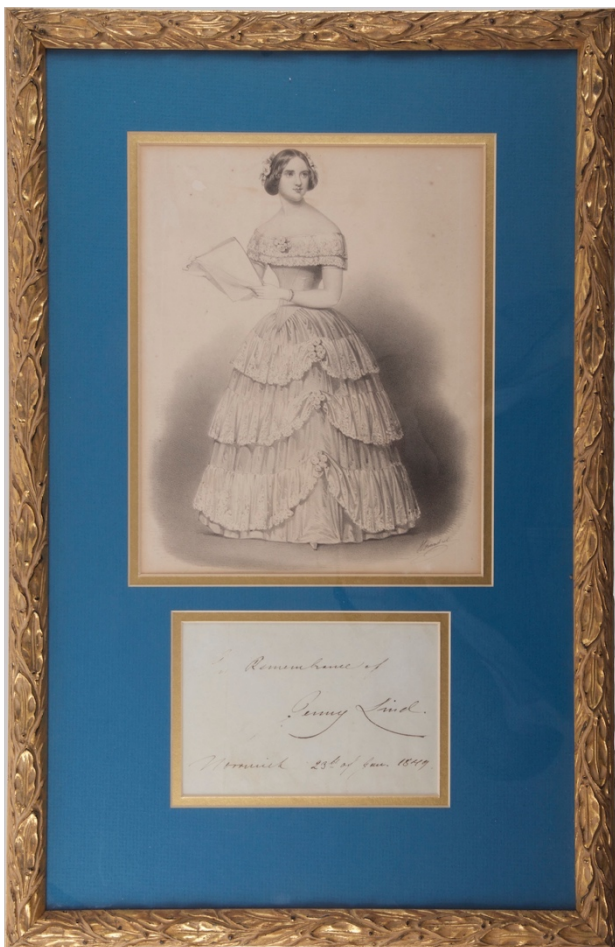 Remembrance of
Jenny Lind.
Norwich 23d of Jan. 1849